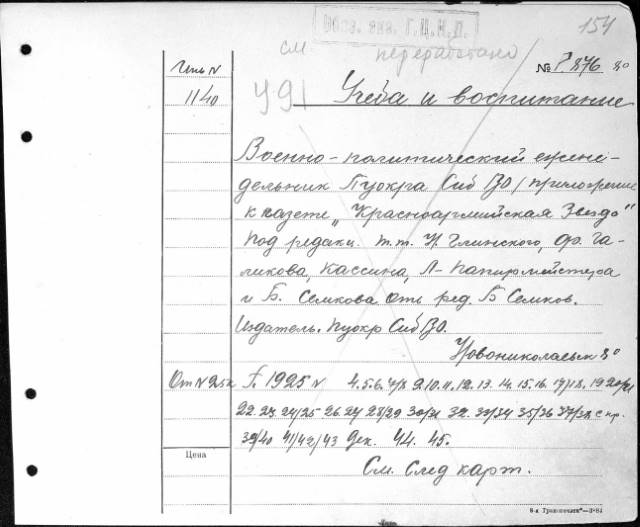 Обяз. экз. Г.Ц.К.П.
154
см переработано
№ P 876 8°
Инв N
1140
У91 Учеба и воспитание
Военно-политический ежене-
дельник Пуокра Сиб ВО / приложение
к газете „Красноармейская Звезда"
Под редакц. т.т. Н. Глинского, Ф. Га-
ликова, Кассина, Л- Папирмейстера
и Б. Семкова Отв ред. Б Семков.
Издатель. Пуокр Сиб ВО.
Новониколаевск 8°
1925 N 4.5.6. 7/8 9.10.11.12.13.14.15.16.17/18. 19 20/21
22. 23. 24/25 26. 27 28/29 30/31 32. 33/34 35/36 37/38 с пр.
39/40 41/42/43 Дек. 44. 45.
Цена
См. След карт.
8-я Гранопечать"—З-84